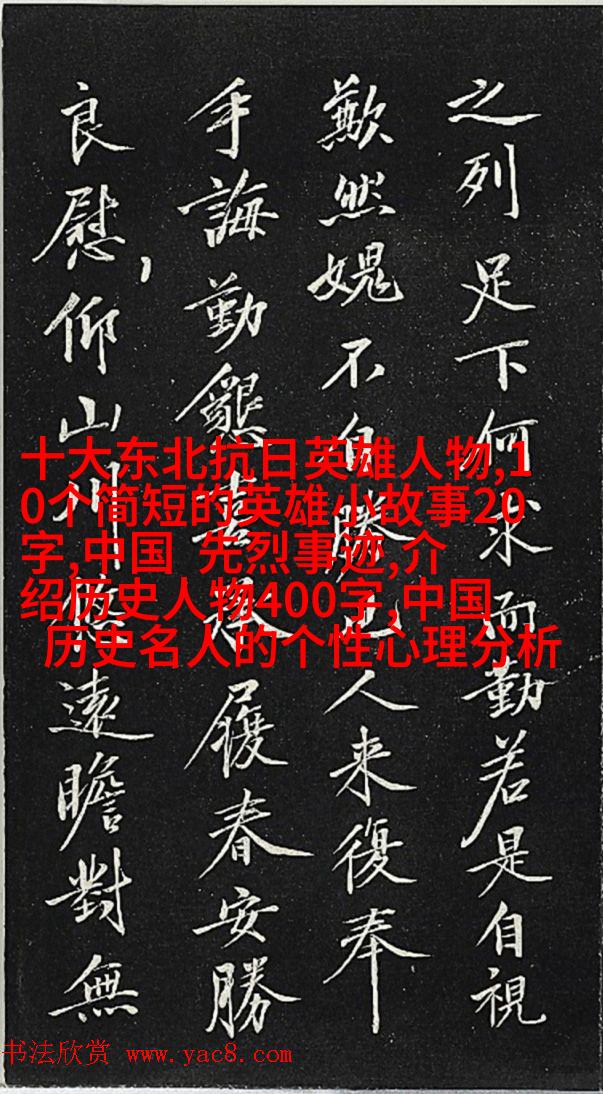 之列足下何求而勤若是自視
歉然媿不自勝也人来復奉
手誨勤懇履春安勝
良慰,仰山川悠遠瞻對無
十大东北抗日英雄人物,1
0个简短的英雄小故事20
字,中国 先烈事迹,介
绍历史人物400字,中国
历史名人的个性心理分析
书法欣赏 www.yac8.com